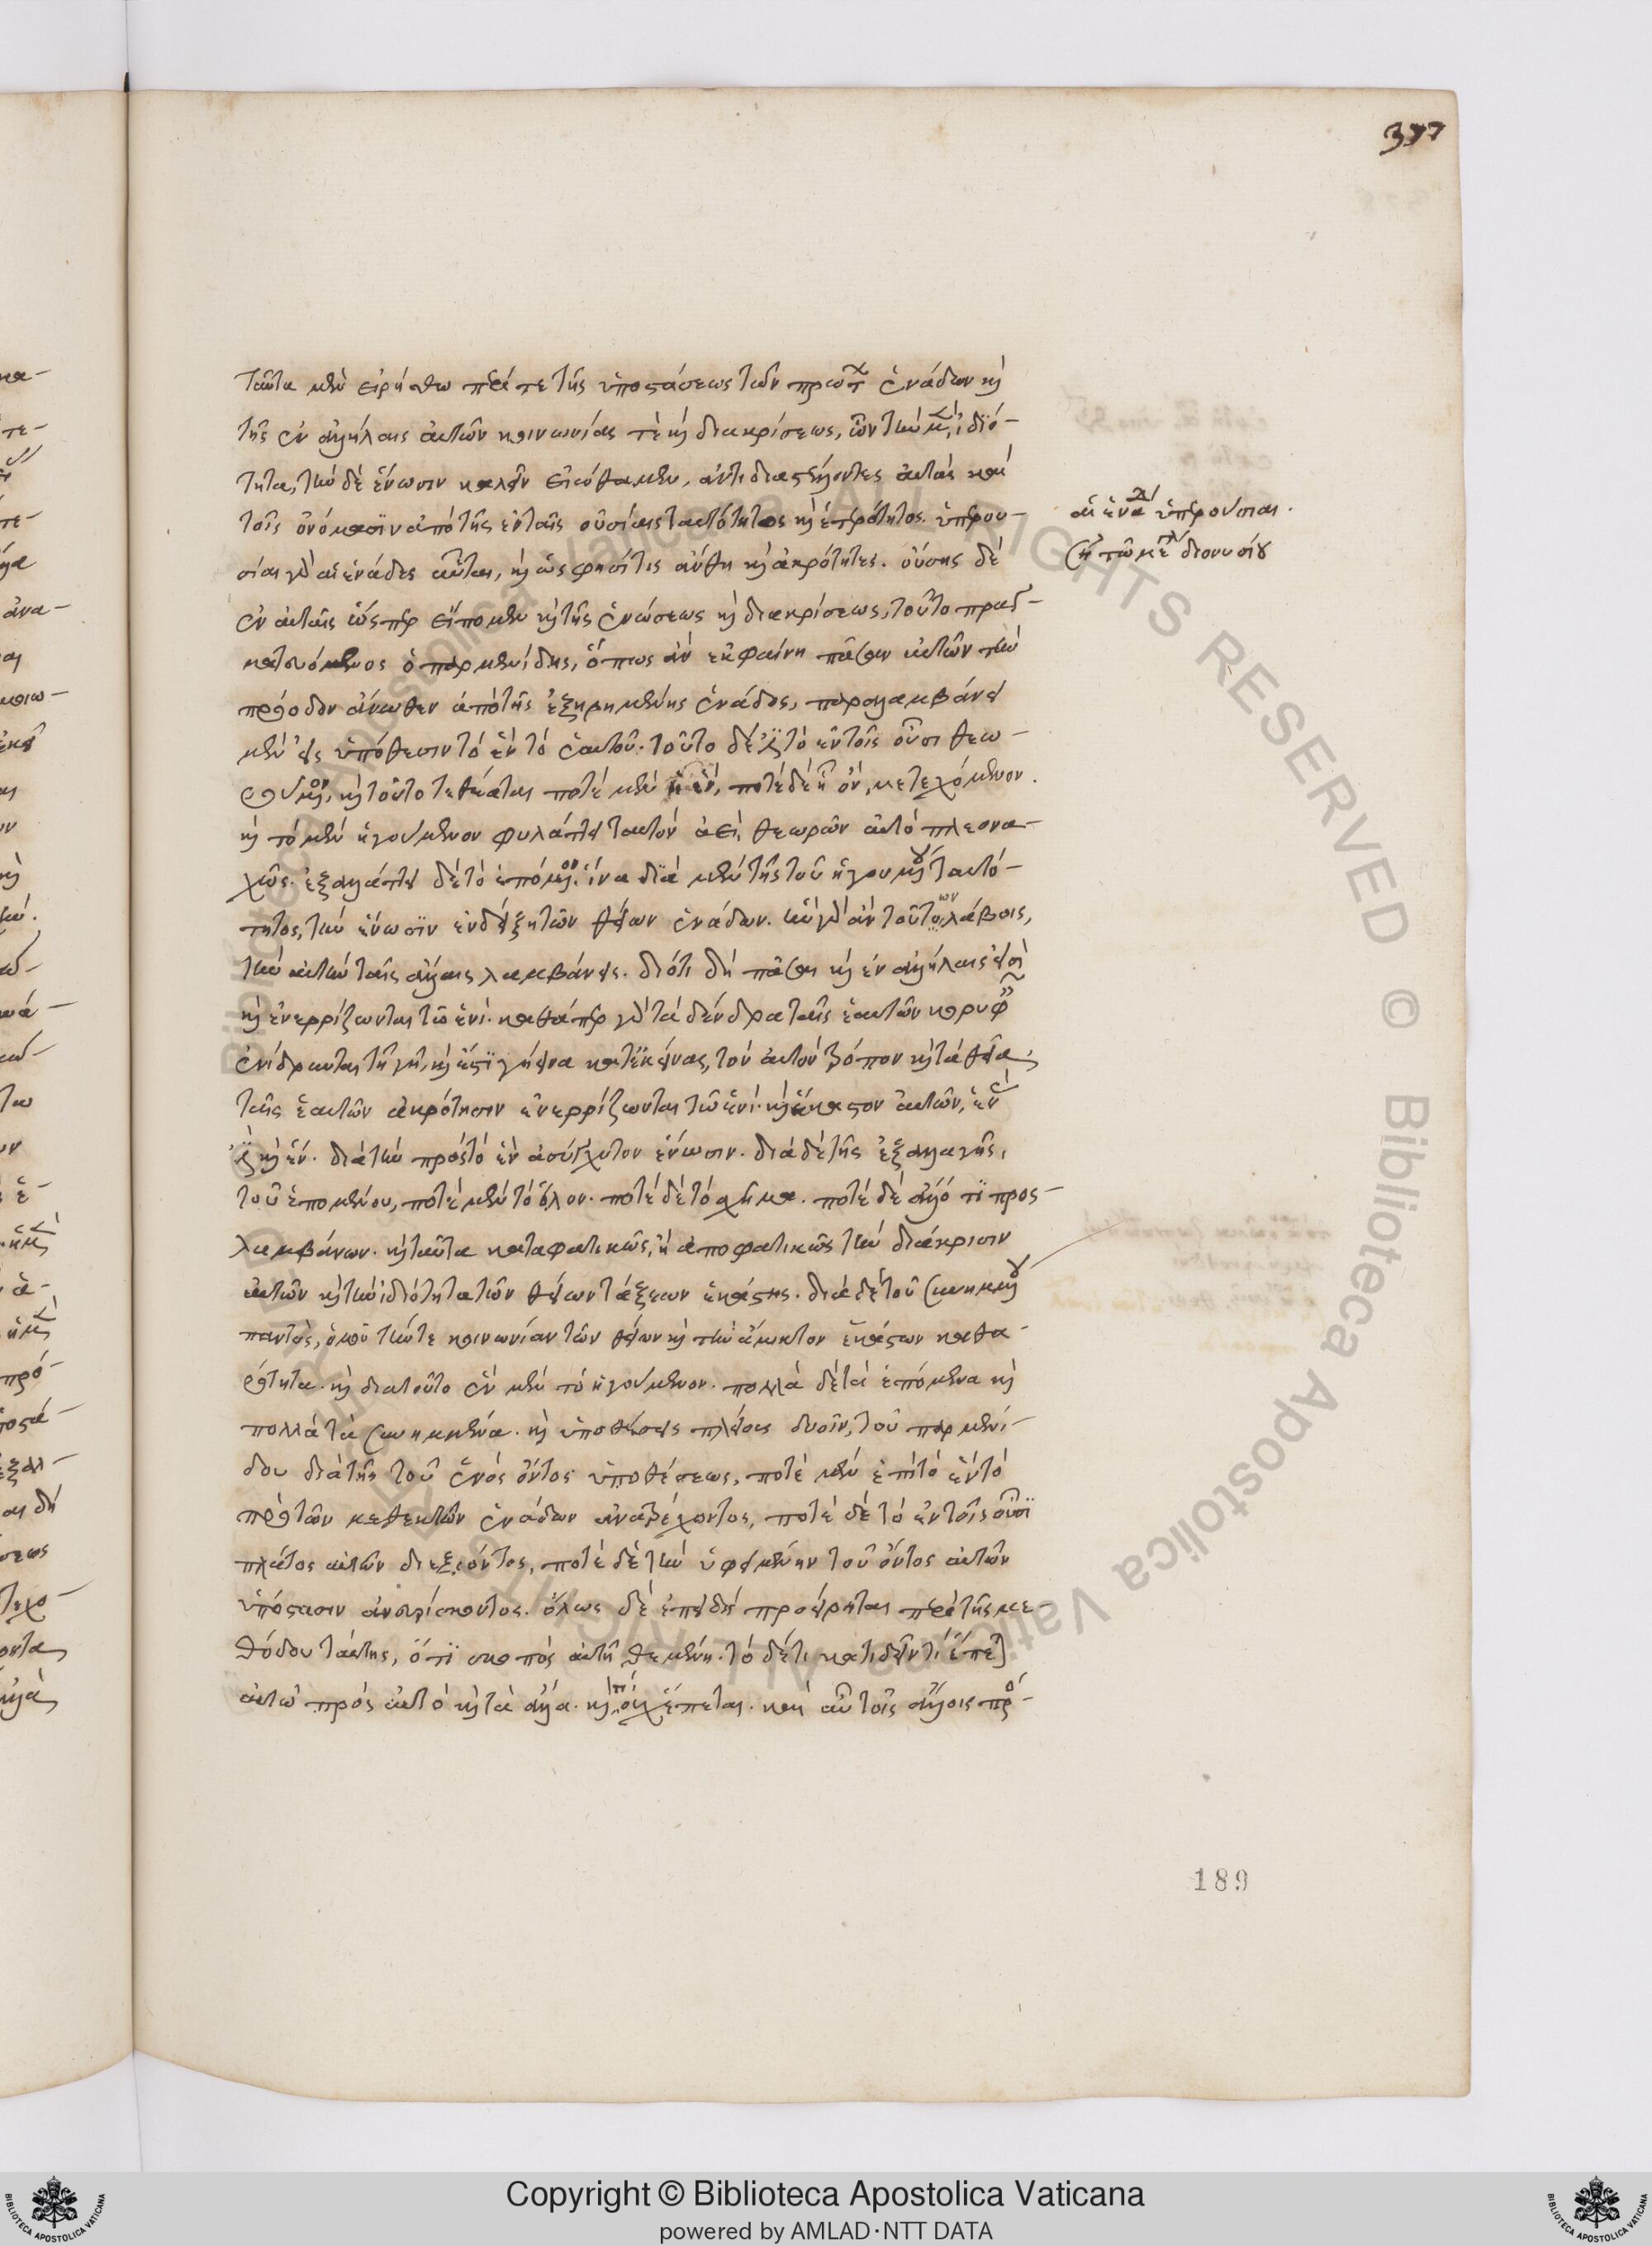 377
ταῦτα μὲν εἰρήσθω περί τε τῆς ὑποστάσεως τῶν πρώτ ἑνάδων καὶ
τῆς ἐν ἀλλήλαις αὐτῶν κοινωνίας τὲ καὶ διακρίσεως, ὧν τὴν μ, ἰδιό-
τητα, τὴν δὲ ἕνωσιν καλεῖν εἰώθαμεν, ἀντιδιαστέλλοντες αὐτὰς καὶ
τοῖς ὀνόμασιν ἀπὸ τῆς ἐν ταῖς οὐσίαις ταυτότητος καὶ ἑτερότητος. ὑπερου-
σίαι γὰρ αἱ ἑνάδες αὗται, καὶ ὥς φησί τις ἄνθη καὶ ἀκρότητες. οὔσης δὲ
ἐν αὐταῖς ὥσπερ εἴπομεν καὶ τῆς ἑνώσεως καὶ διακρίσεως, τοῦτο πραγ-
ματευόμενος ὁ παρμενίδης, ὅπως ἂν ἐκφαίνη πᾶσαν αὐτῶν τὴν
πρόοδον ἄνωθεν ἀπὸ τῆς ἐξηρημένης ἑνάδος, παραλαμβάνει
μὲν εἰς ὑπόθεσιν τὸ ἓν τὸ ἑαυτοῦ. τοῦτο δέ ἐστὶ τὸ ἐν τοῖς οὖσι θεω-
ρούμον, καὶ τοῦτο τεθέαται ποτὲ μὲν ἧ ἕν, ποτὲ δὲ ἧ ὄν, μετεχόμενον.
καὶ τὸ μὲν ἡγούμενον φυλάττει ταυτὸν ἀεὶ θεωρῶν αὐτὸ πλεονα-
χῶς. ἐξαλλάττει δὲ τὸ ἑπόμον. ἵνα διὰ μὲν τῆς τοῦ ἡγουμου ταυτό-
τητος, τὴν ἕνωσιν ἐνδείξη τῶν θείων ἑνάδων. ἣν γὰρ ἂν τούτων λάβοις,
τὴν αὐτὴν ταῖς ἄλλαις λαμβάνεις. διότι δὴ πᾶσαι καὶ ἐν ἀλλήλαις εἰσὶ
καὶ ἐνερρίζωνται τῶ ἑνί. καθάπερ γὰρ τὰ δένδρα ταῖς ἑαυτῶν κορυφ
ἐνίδρυνται τῆ γῆ, καὶ ἔστι γήινα κατ' ἐκείνας, τὸν αὐτὸν τρόπον καὶ τὰ θεῖα,
ταῖς ἑαυτῶν ἀκρότησιν ἐνερρίζωνται τῶ ἑνί. καὶ ἕκαστον αὐτῶν, ἑν
ἐστὶ καὶ ἕν. διὰ τὴν πρὸς τὸ ἓν ἀσύγχυτον ἕνωσιν. διὰ δὲ τῆς ἐξαλλαγῆς,
τοῦ ἑπομένου, ποτὲ μὲν τὸ ὅλον. ποτὲ δὲ τὸ σχῆμα. ποτὲ δὲ ἄλλό τι προσ-
λαμβάνων. καὶ ταῦτα καταφατικῶς, ἢ ἀποφατικῶς τὴν διάκρισιν
αὐτῶν καὶ τὴν ἰδιότητα τῶν θείων τάξεων ἑκάστης. διὰ δὲ τοῦ συνημμου
παντὸς, ὁμοῦ τήν τε κοινωνίαν τῶν θείων καὶ τὴν ἄμικτον ἑκάστων καθα-
ρότητα. καὶ διατοῦτο ἓν μὲν τὸ ἡγούμενον. πολλὰ δὲ τὰ ἑπόμενα καὶ
πολλὰ τὰ συνημμένα. καὶ ὑποθέσεις πλείους δυοῖν, τοῦ παρμενί-
δου διὰ τῆς τοῦ ἑνὸς ὄντος ὑποθέσεως, ποτὲ μὲν ἐπὶ τὸ ἓν τὸ
πρὸ τῶν μεθεκτῶν ἑνάδων ἀνατρέχοντος, ποτὲ δὲ τὸ ἐν τοῖς οὖσι
πλάτος αὐτῶν διεξιόντος, ποτὲ δὲ τὴν ὑφειμένην τοῦ ὄντος αὐτῶν
ὑπόστασιν ἀνευρίσκοντος. ὅλως δὲ ἐπειδὴ προείρηται περὶ τῆς με-
θόδου ταύτης, ὅτι σκοπὸς αὐτῆ θεμένη. τὸ δέ τι κατιδεῖν τί ἕπε
αὐτῶ πρὸς αὐτὸ καὶ τὰ ἄλλα. καὶ πῆ οὐχ ἕπεται. καὶ αὖ τοῖς ἄλλοις πρό-
αἱ ἑνα ὑπερούσιαι.
διονυσίου
189
Copyright © Biblioteca Apostolica Vaticana
powered by AMLAD·NTT DATA